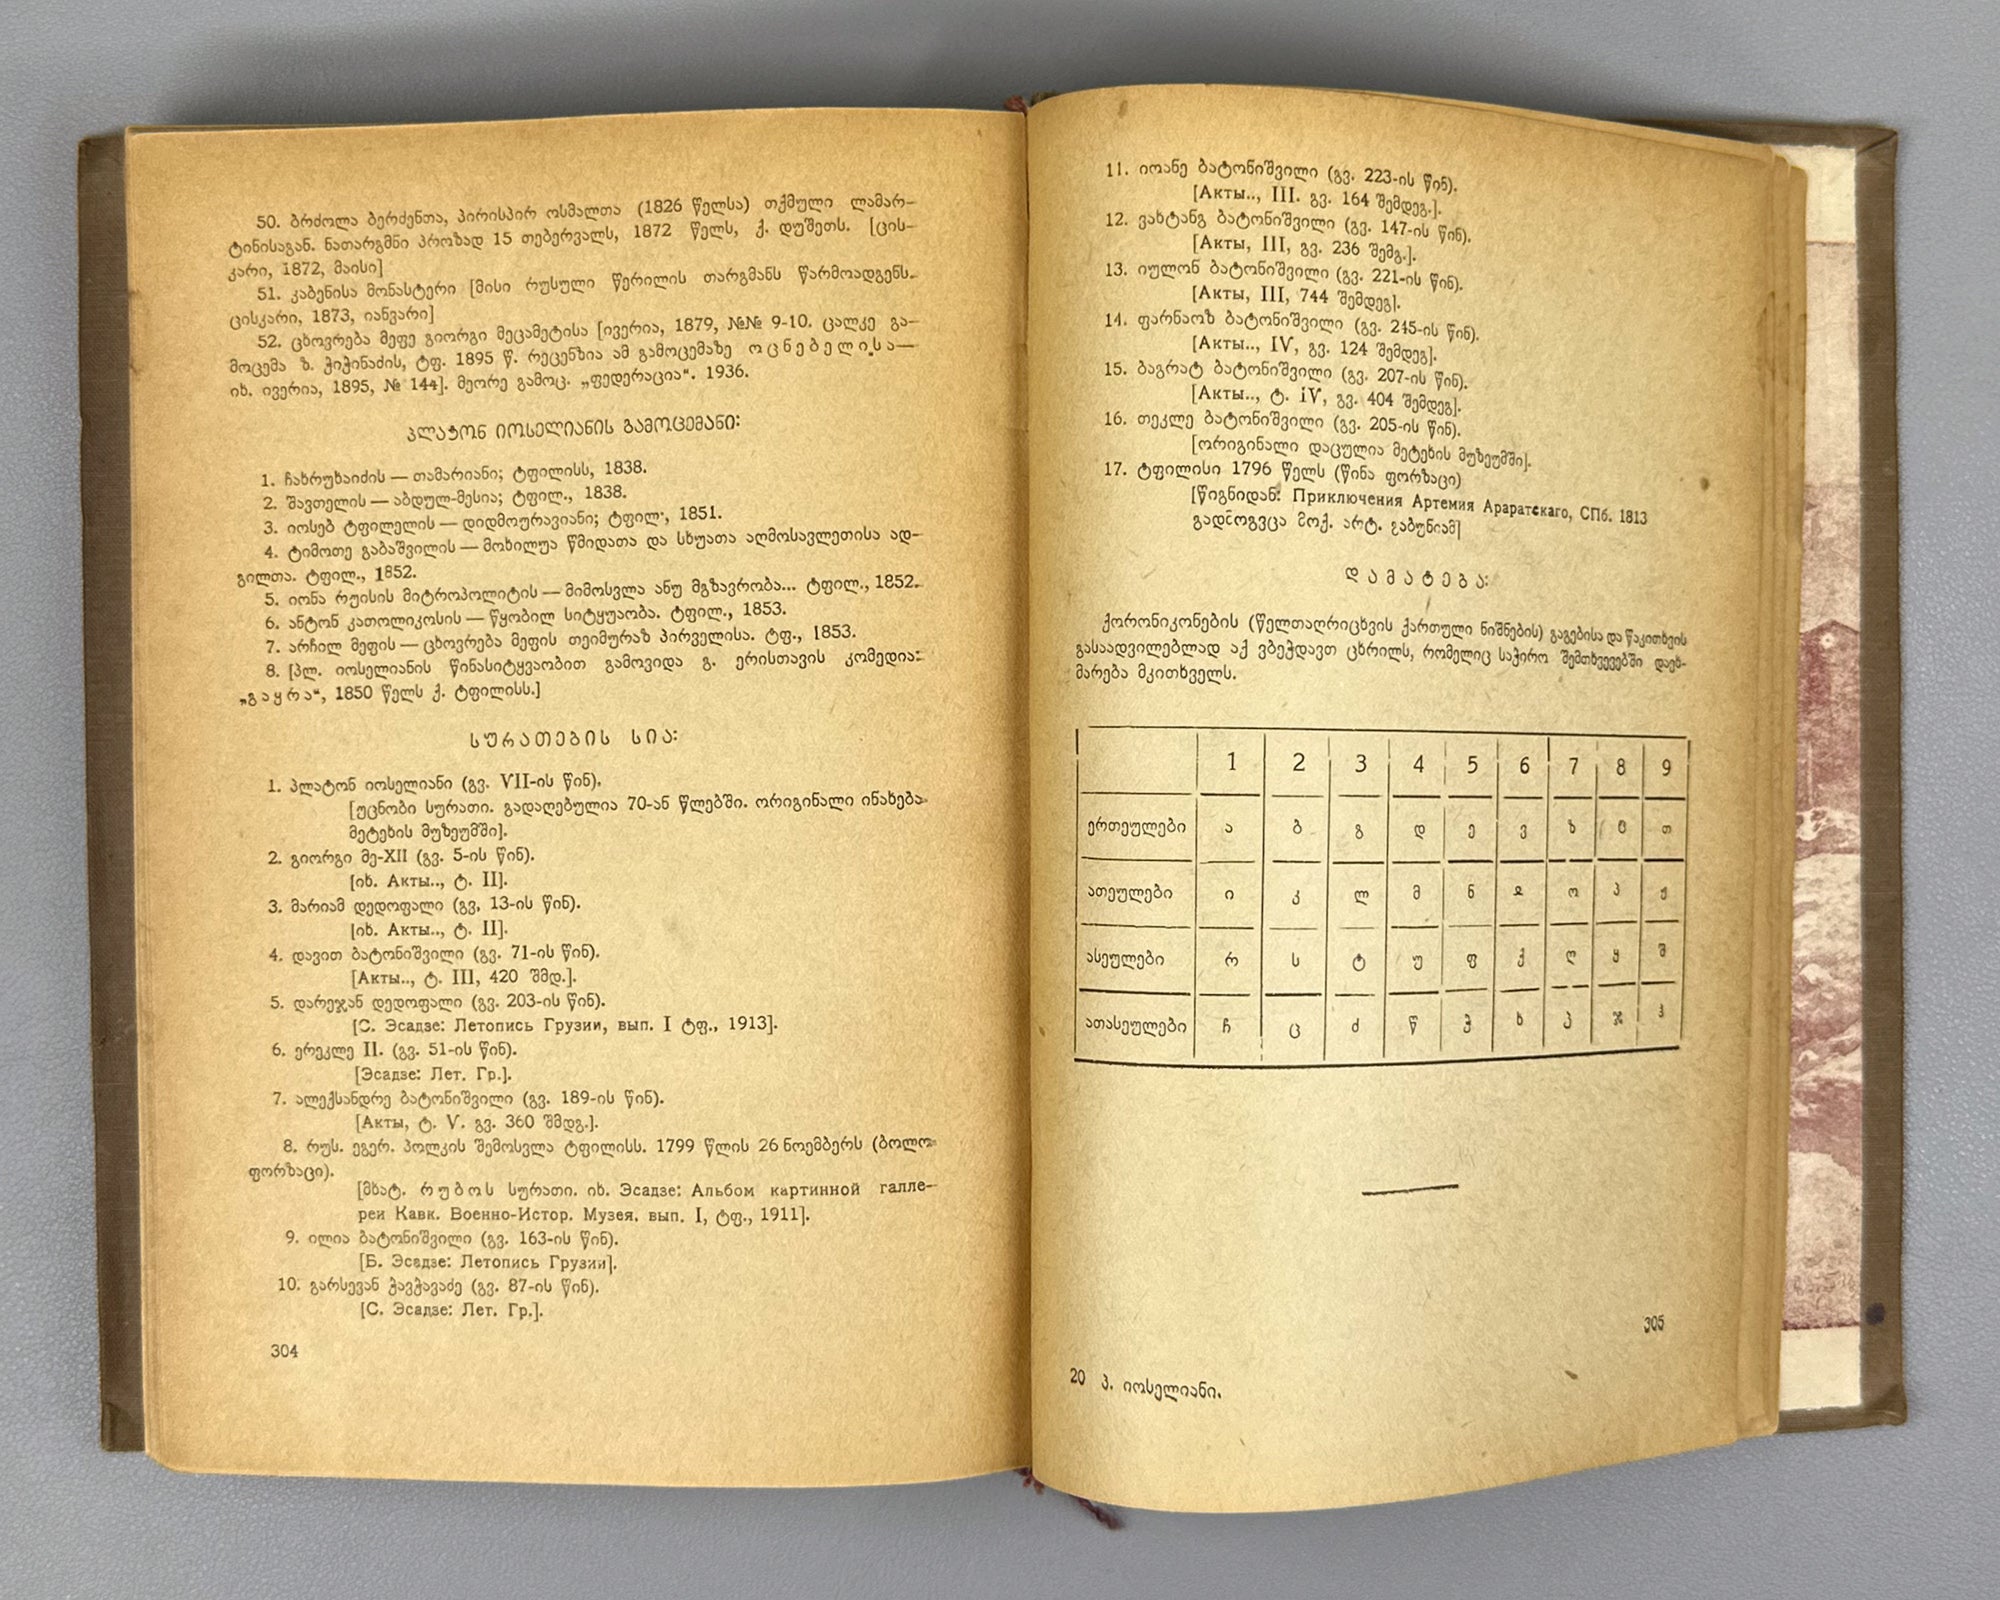 50. ბრძოლა ბერძენთა, პირისპირ ოსმალთა (1826 წელსა) თქმული ლამარ-
ტინისაგან. ნათარგმნი პროზად 15 თებერვალს, 1872 წელს, ქ. დუშეთს. [ცის-
კარი, 1872, მაისი]
51. კაბენისა მონასტერი [მისი რუსული წერილის თარგმანს წარმოადგენს.
ცისკარი, 1873, იანვარი]
52. ცხოვრება მეფე გიორგი მეცამეტისა [ივერია, 1879, №№ 9-10. ცალკე გა-
მოცემა ზ. ჭიჭინაძის, ტფ. 1895 წ. რეცენზია ამ გამოცემაზე ოცნებელისა—
იხ. ივერია, 1895, № 144]. მეორე გამოც. „ფედერაცია“. 1936.
პლატონ იოსელიანის გამოცემანი:
1. ჩახრუხაიძის — თამარიანი; ტფილისს, 1838.
2. შავთელის — აბდულ-მესია; ტფილ., 1838.
3. იოსებ ტფილელის — დიდმოურავიანი; ტფილ., 1851.
4. ტიმოთე გაბაშვილის — მოხილუა წმიდათა და სხუათა აღმოსავლეთისა ად-
გილთა. ტფილ., 1852.
5. იონა რუისის მიტროპოლიტის — მიმოსვლა ანუ მგზავრობა... ტფილ., 1852.
6. ანტონ კათოლიკოსის — წყობილ სიტყუაობა. ტფილ., 1853.
7. არჩილ მეფის — ცხოვრება მეფის თეიმურაზ პირველისა. ტფ., 1853.
8. [პლ. იოსელიანის წინასიტყვაობით გამოვიდა გ. ერისთავის კომედია:
„გაყრა“, 1850 წელს ქ. ტფილისს.]
სურათების სია:
1. პლატონ იოსელიანი (გვ. VII-ის წინ).
[უცნობი სურათი. გადაღებულია 70-ან წლებში. ორიგინალი ინახება
მეტეხის მუზეუმში].
2. გიორგი მე-XII (გვ. 5-ის წინ).
[იხ. Акты.., ტ. II].
3. მარიამ დედოფალი (გვ. 13-ის წინ).
[იხ. Акты.., ტ. II].
4. დავით ბატონიშვილი (გვ. 71-ის წინ).
[Акты.., ტ. III, 420 შმდ.].
5. დარეჯან დედოფალი (გვ. 203-ის წინ).
[С. Эсадзе: Летопись Грузии, вып. I ტფ., 1913].
6. ერეკლე II. (გვ. 51-ის წინ).
[Эсадзе: Лет. Гр.].
7. ალექსანდრე ბატონიშვილი (გვ. 189-ის წინ).
[Акты, ტ. V. გვ. 360 შმდგ.].
8. რუს. ეგერ. პოლკის შემოსვლა ტფილისს. 1799 წლის 26 ნოემბერს (ბოლო
ფორზაცი).
[მხატ. რუბოს სურათი. იხ. Эсадзе: Альбом картинной галле-
реи Кавк. Военно-Истор. Музея. вып. I, ტფ., 1911].
9. ილია ბატონიშვილი (გვ. 163-ის წინ).
[Б. Эсадзе: Летопись Грузии].
10. გარსევან ჭავჭავაძე (გვ. 87-ის წინ).
[С. Эсадзе: Лет. Гр.].
304
11. იოანე ბატონიშვილი (გვ. 223-ის წინ).
[Акты.., III. გვ. 164 შემდეგ.].
12. ვახტანგ ბატონიშვილი (გვ. 147-ის წინ).
[Акты, III, გვ. 236 შემგ.].
13. იულონ ბატონიშვილი (გვ. 221-ის წინ).
[Акты, III, 744 შემდეგ].
14. ფარნაოზ ბატონიშვილი (გვ. 245-ის წინ).
[Акты.., IV, გვ. 124 შემდეგ].
15. ბაგრატ ბატონიშვილი (გვ. 207-ის წინ).
[Акты.., ტ. IV, გვ. 404 შემდეგ].
16. თეკლე ბატონიშვილი (გვ. 205-ის წინ).
[ორიგინალი დაცულია მეტეხის მუზეუმში].
17. ტფილისი 1796 წელს (წინა ფორზაცი)
[წიგნიდან: Приключения Артемия Араратскаго, СПб. 1813
გადმოგვცა მოქ. არტ. გაბუნიამ]
დამატება:
ქორონიკონების (წელთაღრიცხვის ქართული ნიშნების) გაგებისა და წაკითხვის
გასაადვილებლად აქ ვბეჭდავთ ცხრილს, რომელიც საჭირო შემთხვევებში დაეხ-
მარება მკითხველს.
1 2 3 4 5 6 7 8 9
ერთეულები ა ბ გ დ ე ვ ზ ჱ თ
ათეულები ი კ ლ მ ნ ჲ ო პ ჟ
ასეულები რ ს ტ უ ფ ქ ღ ყ შ
ათასეულები ჩ ც ძ წ ჭ ხ ჴ ჯ ჰ
305
20 პ. იოსელიანი.